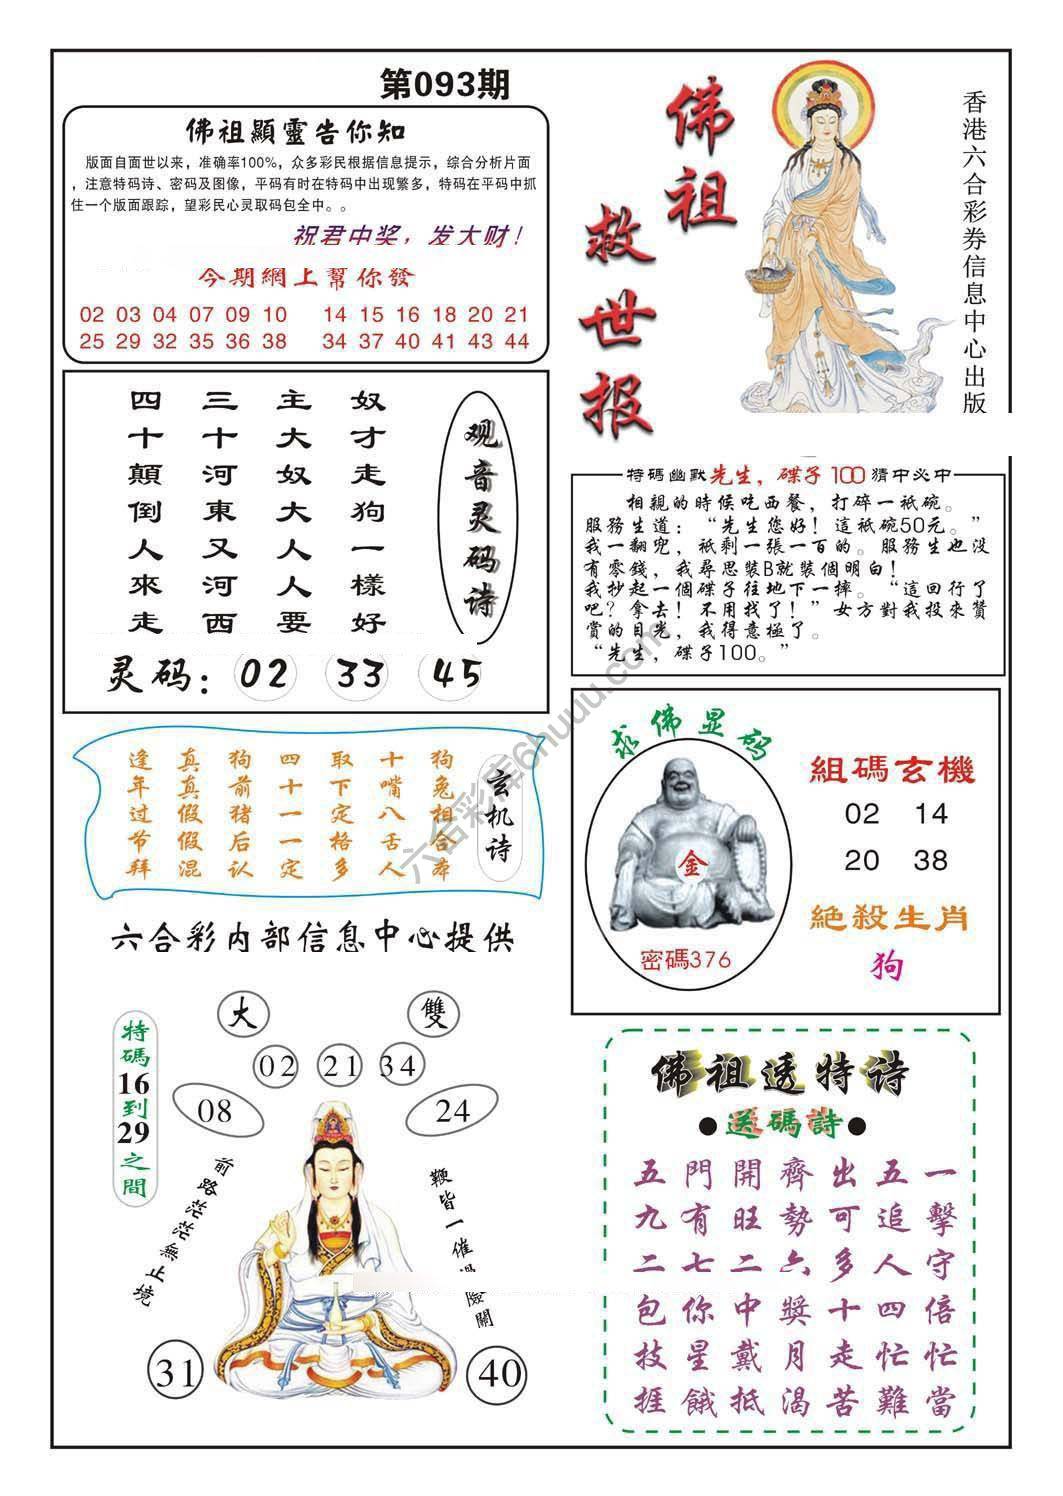 第093期
佛祖顯靈告你知
版面自面世以来，准确率100%，众多彩民根据信息提示，综合分析片面
，注意特码诗、密码及图像，平码有时在特码中出现繁多，特码在平码中抓
住一个版面跟踪，望彩民心灵取码包全中。。
祝君中奖，发大财！
今期網上幫你發
02 03 04 07 09 10 14 15 16 18 20 21
25 29 32 35 36 38 34 37 40 41 43 44
佛祖
救世报
香港六合彩券信息中心出版
奴才走狗一樣好
主大奴大人人要
三十河東又河西
四十顛倒人來走
观音灵码诗
灵码：02 33 45
特碼幽默先生，碟子100猜中必中
相親的時候吃西餐，打碎一祗碗。
服務生道：“先生您好！這祗碗50元。”
我一翻兜，祇剩一張一百的。服務生也没
有零錢，我尋思裝B就裝個明白！
我抄起一個碟子往地下一摔。“這回行了
吧？拿去！不用找了！”女方對我投來贊
賞的目光，我得意極了。
“先生，碟子100。”
狗兔相合
十嘴八舌人
取下定格多
四十一一定
狗前猪后认
真真假假混
逢年过节拜
玄机诗
求佛显码
金
密碼376
組碼玄機
02 14
20 38
絶殺生肖
狗
六合彩内部信息中心提供
大 雙
02 21 34
08 24
特碼16到29之間
前路茫茫無止境
鞭皆一催險關
31 40
佛祖透特诗
●送碼詩●
五門開齊出五一
九有旺勢可追擊
二七二六多人守
包你中獎十四倍
技星戴月走忙忙
捱餓抵渴苦難當
六合彩库6huuu.com